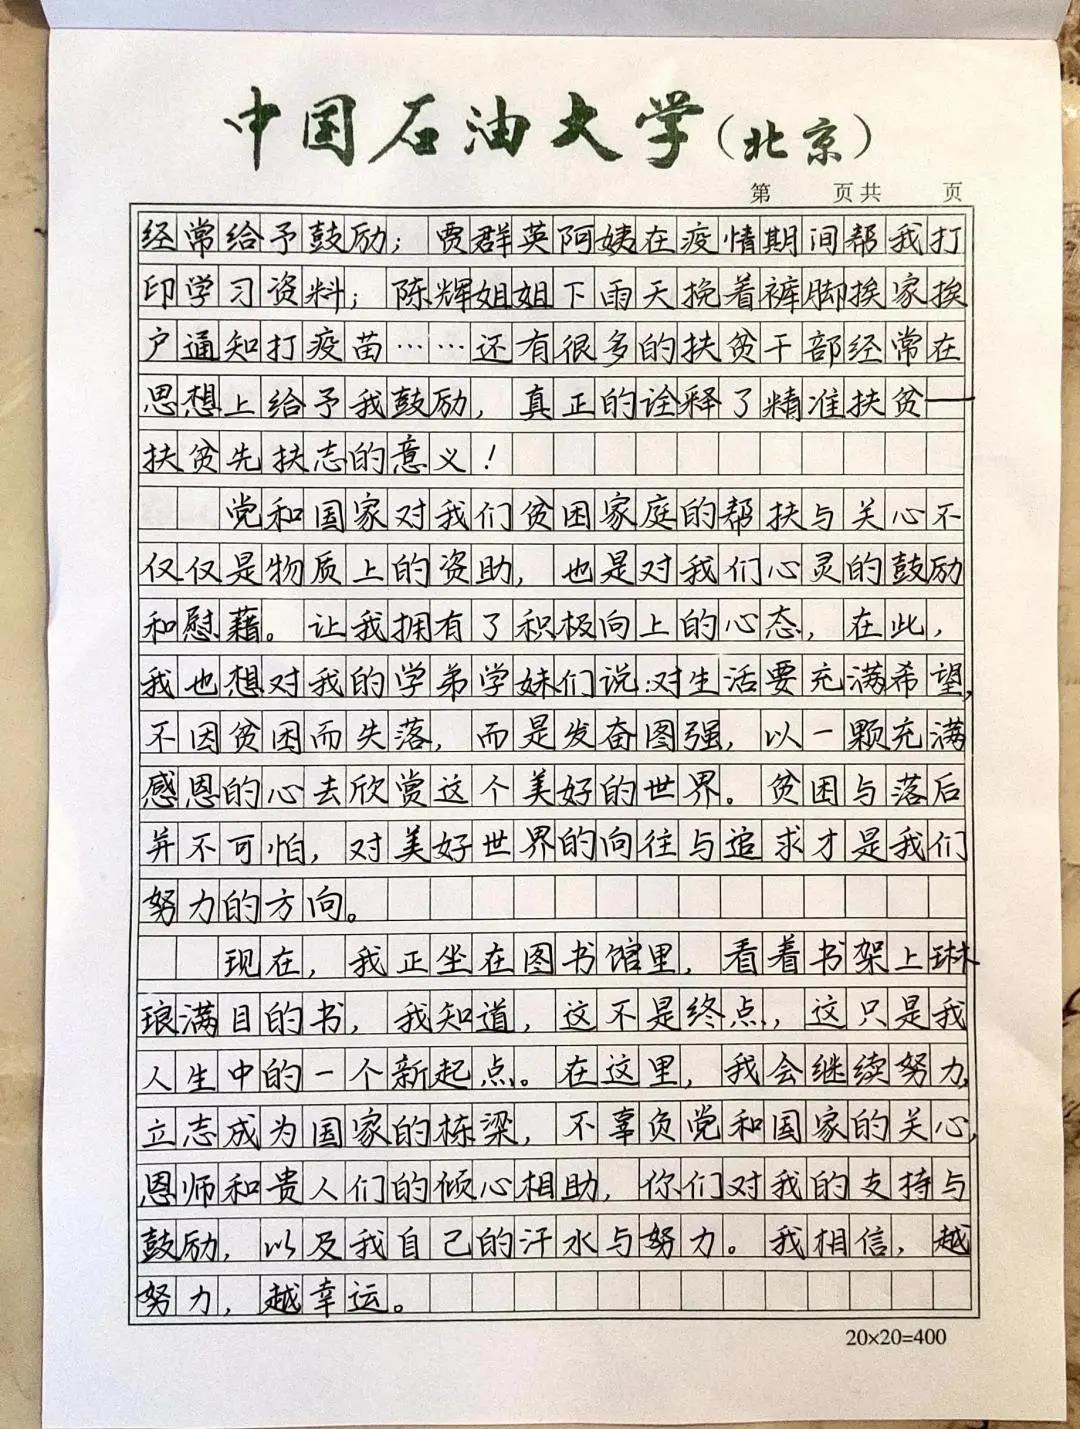 中国石油大学（北京）
第 页共 页
经常给予鼓励；贾群英阿姨在疫情期间帮我打
印学习资料；陈辉姐姐下雨天挽着裤脚挨家挨
户通知打疫苗……还有很多的扶贫干部经常在
思想上给予我鼓励，真正的诠释了精准扶贫—
扶贫先扶志的意义！
党和国家对我们贫困家庭的帮扶与关心不
仅仅是物质上的资助，也是对我们心灵的鼓励
和慰藉。让我拥有了积极向上的心态，在此，
我也想对我的学弟学妹们说：对生活要充满希望，
不因贫困而失落，而是发奋图强，以一颗充满
感恩的心去欣赏这个美好的世界。贫困与落后
并不可怕，对美好世界的向往与追求才是我们
努力的方向。
现在，我正坐在图书馆里，看着书架上琳
琅满目的书，我知道，这不是终点，这只是我
人生中的一个新起点。在这里，我会继续努力，
立志成为国家的栋梁，不辜负党和国家的关心，
恩师和贵人们的倾心相助，你们对我的支持与
鼓励，以及我自己的汗水与努力。我相信，越
努力，越幸运。
20×20=400